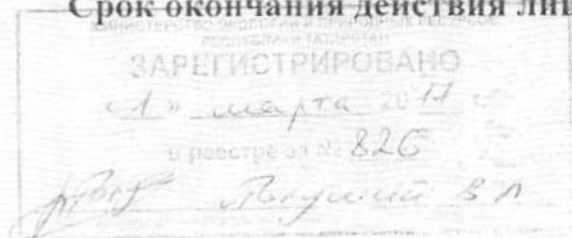 Срок окончания действия лиц
МИНИСТЕРСТВО ЭКОЛОГИИ И ПРИРОДНЫХ РЕСУРСОВ
РЕСПУБЛИКИ ТАТАРСТАН
ЗАРЕГИСТРИРОВАНО
«1» марта 2017 г.
в реестре за № 826
В А